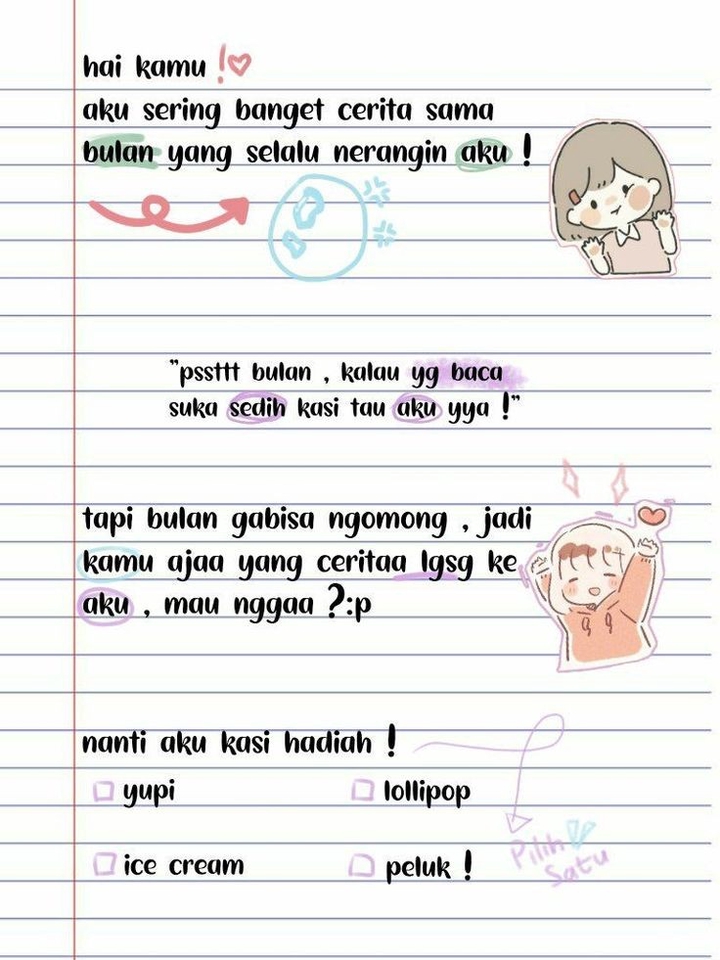 hai kamu !♡
aku sering banget cerita sama
bulan yang selalu nerangin aku !
"pssttt bulan , kalau yg baca
suka sedih kasi tau aku yya !"
tapi bulan gabisa ngomong , jadi
kamu ajaa yang ceritaa lgsg ke
aku , mau nggaa ?:p
nanti aku kasi hadiah !
yupi
lollipop
ice cream
peluk !
Pilih
Satu